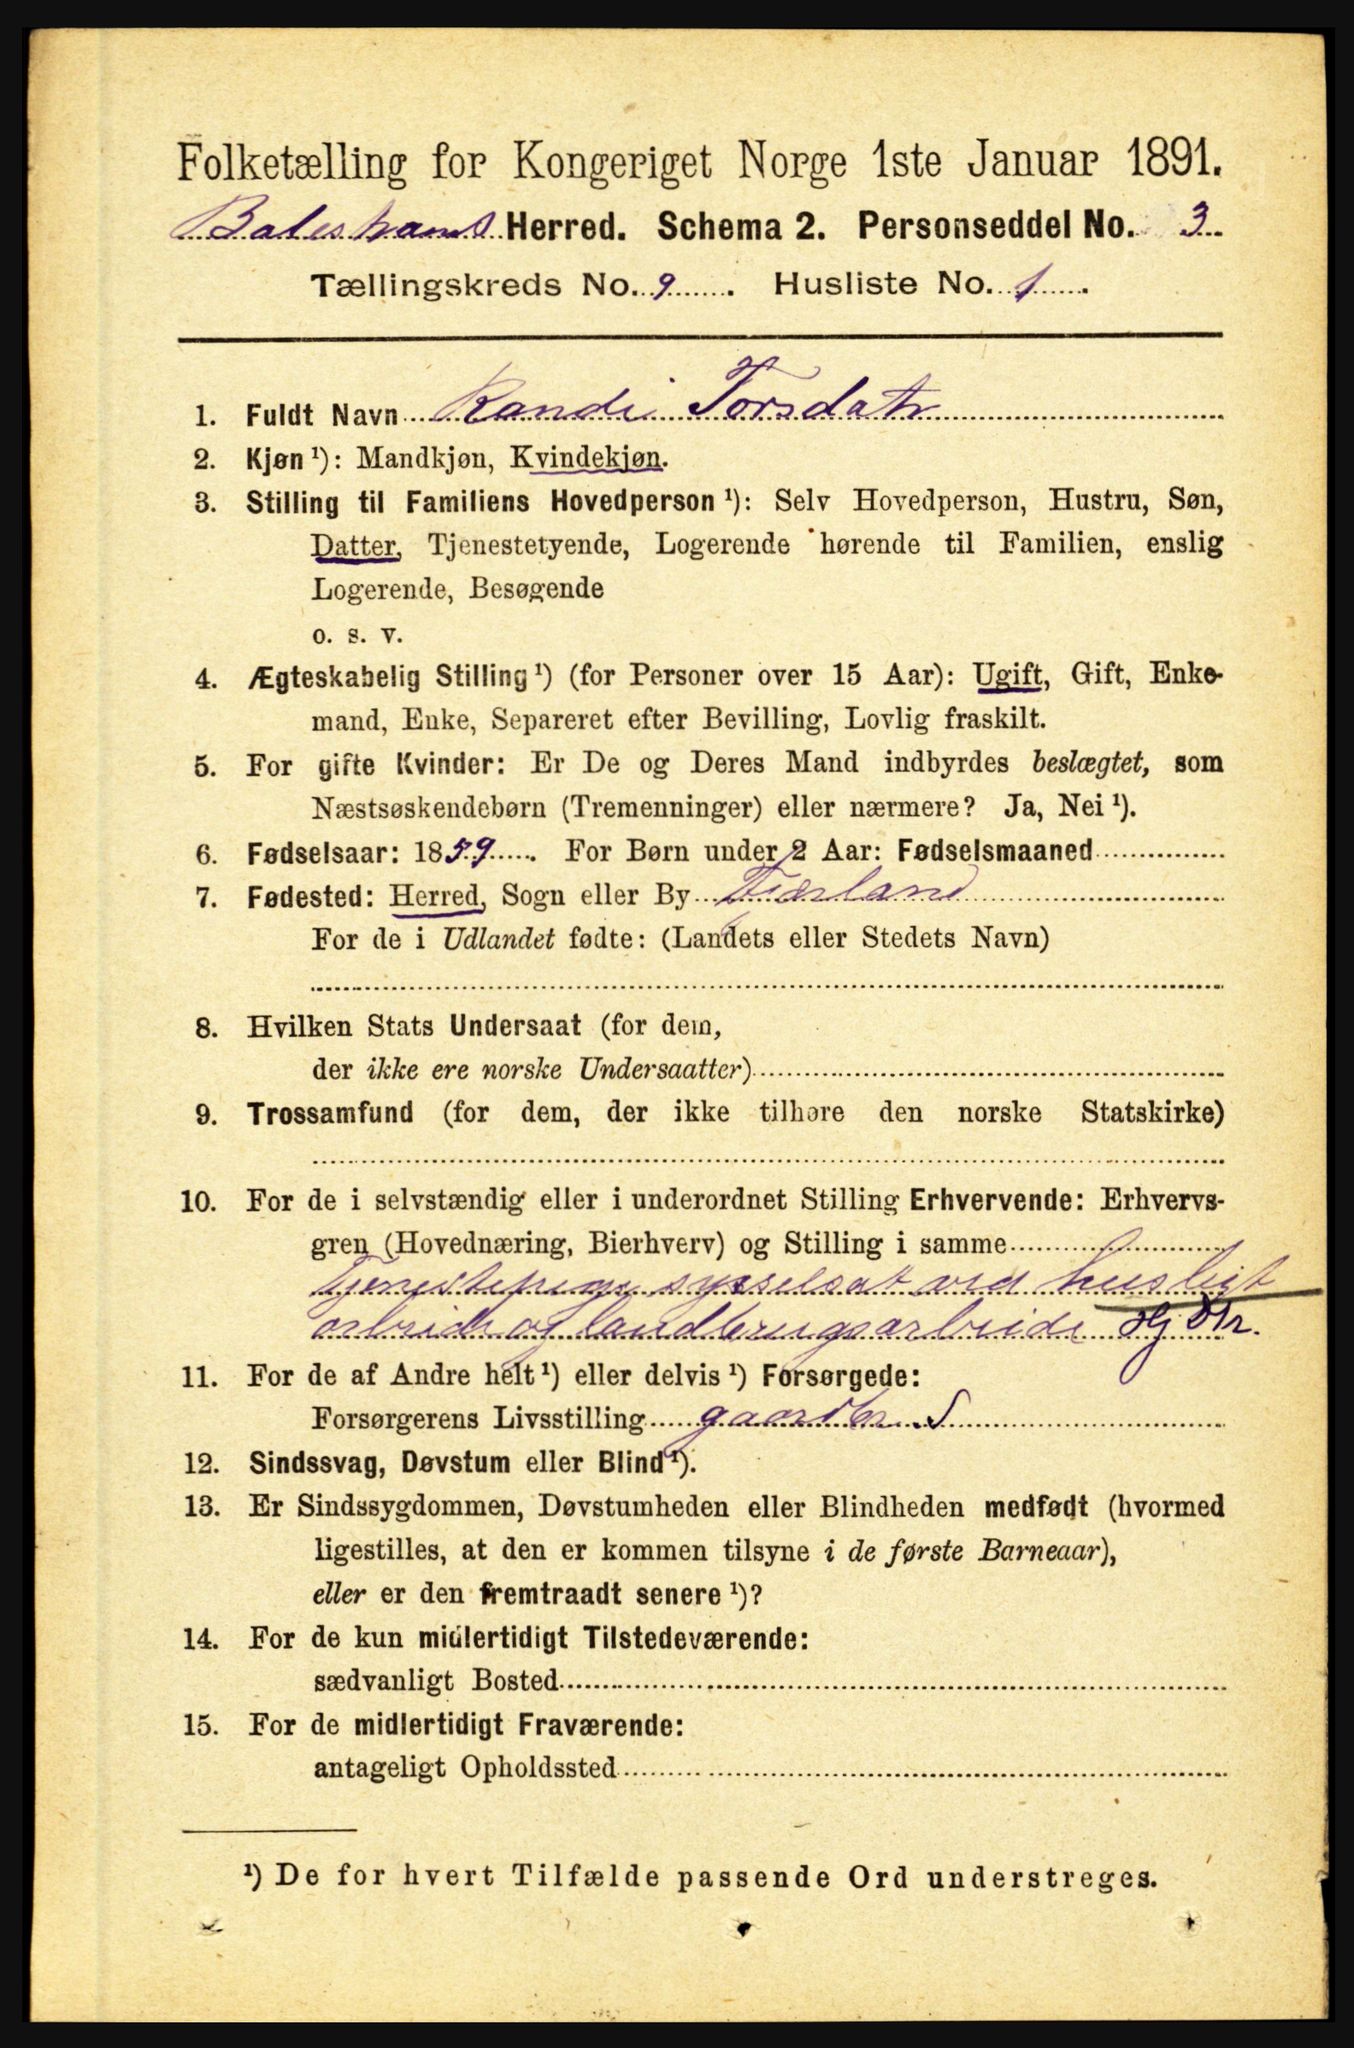 Folketælling for Kongeriget Norge 1ste Januar 1891.
Balestrand Herred. Schema 2. Personseddel No. 3
Tællingskreds No. 9. Husliste No. 1.
1. Fuldt Navn Randi Torsdatr
2. Kjøn ¹): Mandkjøn, Kvindekjøn.
3. Stilling til Familiens Hovedperson ¹): Selv Hovedperson, Hustru, Søn,
Datter, Tjenestetyende, Logerende hørende til Familien, enslig
Logerende, Besøgende
o. s. v.
4. Ægteskabelig Stilling ¹) (for Personer over 15 Aar): Ugift, Gift, Enke-
mand, Enke, Separeret efter Bevilling, Lovlig fraskilt.
5. For gifte Kvinder: Er De og Deres Mand indbyrdes beslægtet, som
Næstsøskendebørn (Tremenninger) eller nærmere? Ja, Nei ¹).
6. Fødselsaar: 1859. For Børn under 2 Aar: Fødselsmaaned
7. Fødested: Herred, Sogn eller By Fjærland
For de i Udlandet fødte: (Landets eller Stedets Navn)
8. Hvilken Stats Undersaat (for dem,
der ikke ere norske Undersaatter)
9. Trossamfund (for dem, der ikke tilhøre den norske Statskirke)
10. For de i selvstændig eller i underordnet Stilling Erhvervende: Erhvervs-
gren (Hovednæring, Bierhverv) og Stilling i samme
Tjenestepige sysselsat ved husligt
arbeide og landbrugsarbeide
11. For de af Andre helt ¹) eller delvis ¹) Forsørgede:
Forsørgerens Livsstilling gaardbr. S
12. Sindssvag, Døvstum eller Blind ¹).
13. Er Sindssygdommen, Døvstumheden eller Blindheden medfødt (hvormed
ligestilles, at den er kommen tilsyne i de første Barneaar),
eller er den fremtraadt senere ¹)?
14. For de kun midlertidigt Tilstedeværende:
sædvanligt Bosted
15. For de midlertidigt Fraværende:
antageligt Opholdssted
¹) De for hvert Tilfælde passende Ord understreges.